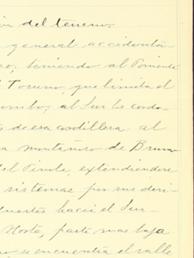 del terreno.
general accidentan
teniendo al Poniente
Toruno, que limita el
ombo, al Sur la cordi
de esa cordillera al
montañoso de Brun
del Pinte, extendiendose
sistemas por sus deri
puertos hacia el Sur
Norte, parte mas baja
se encuentra el valle